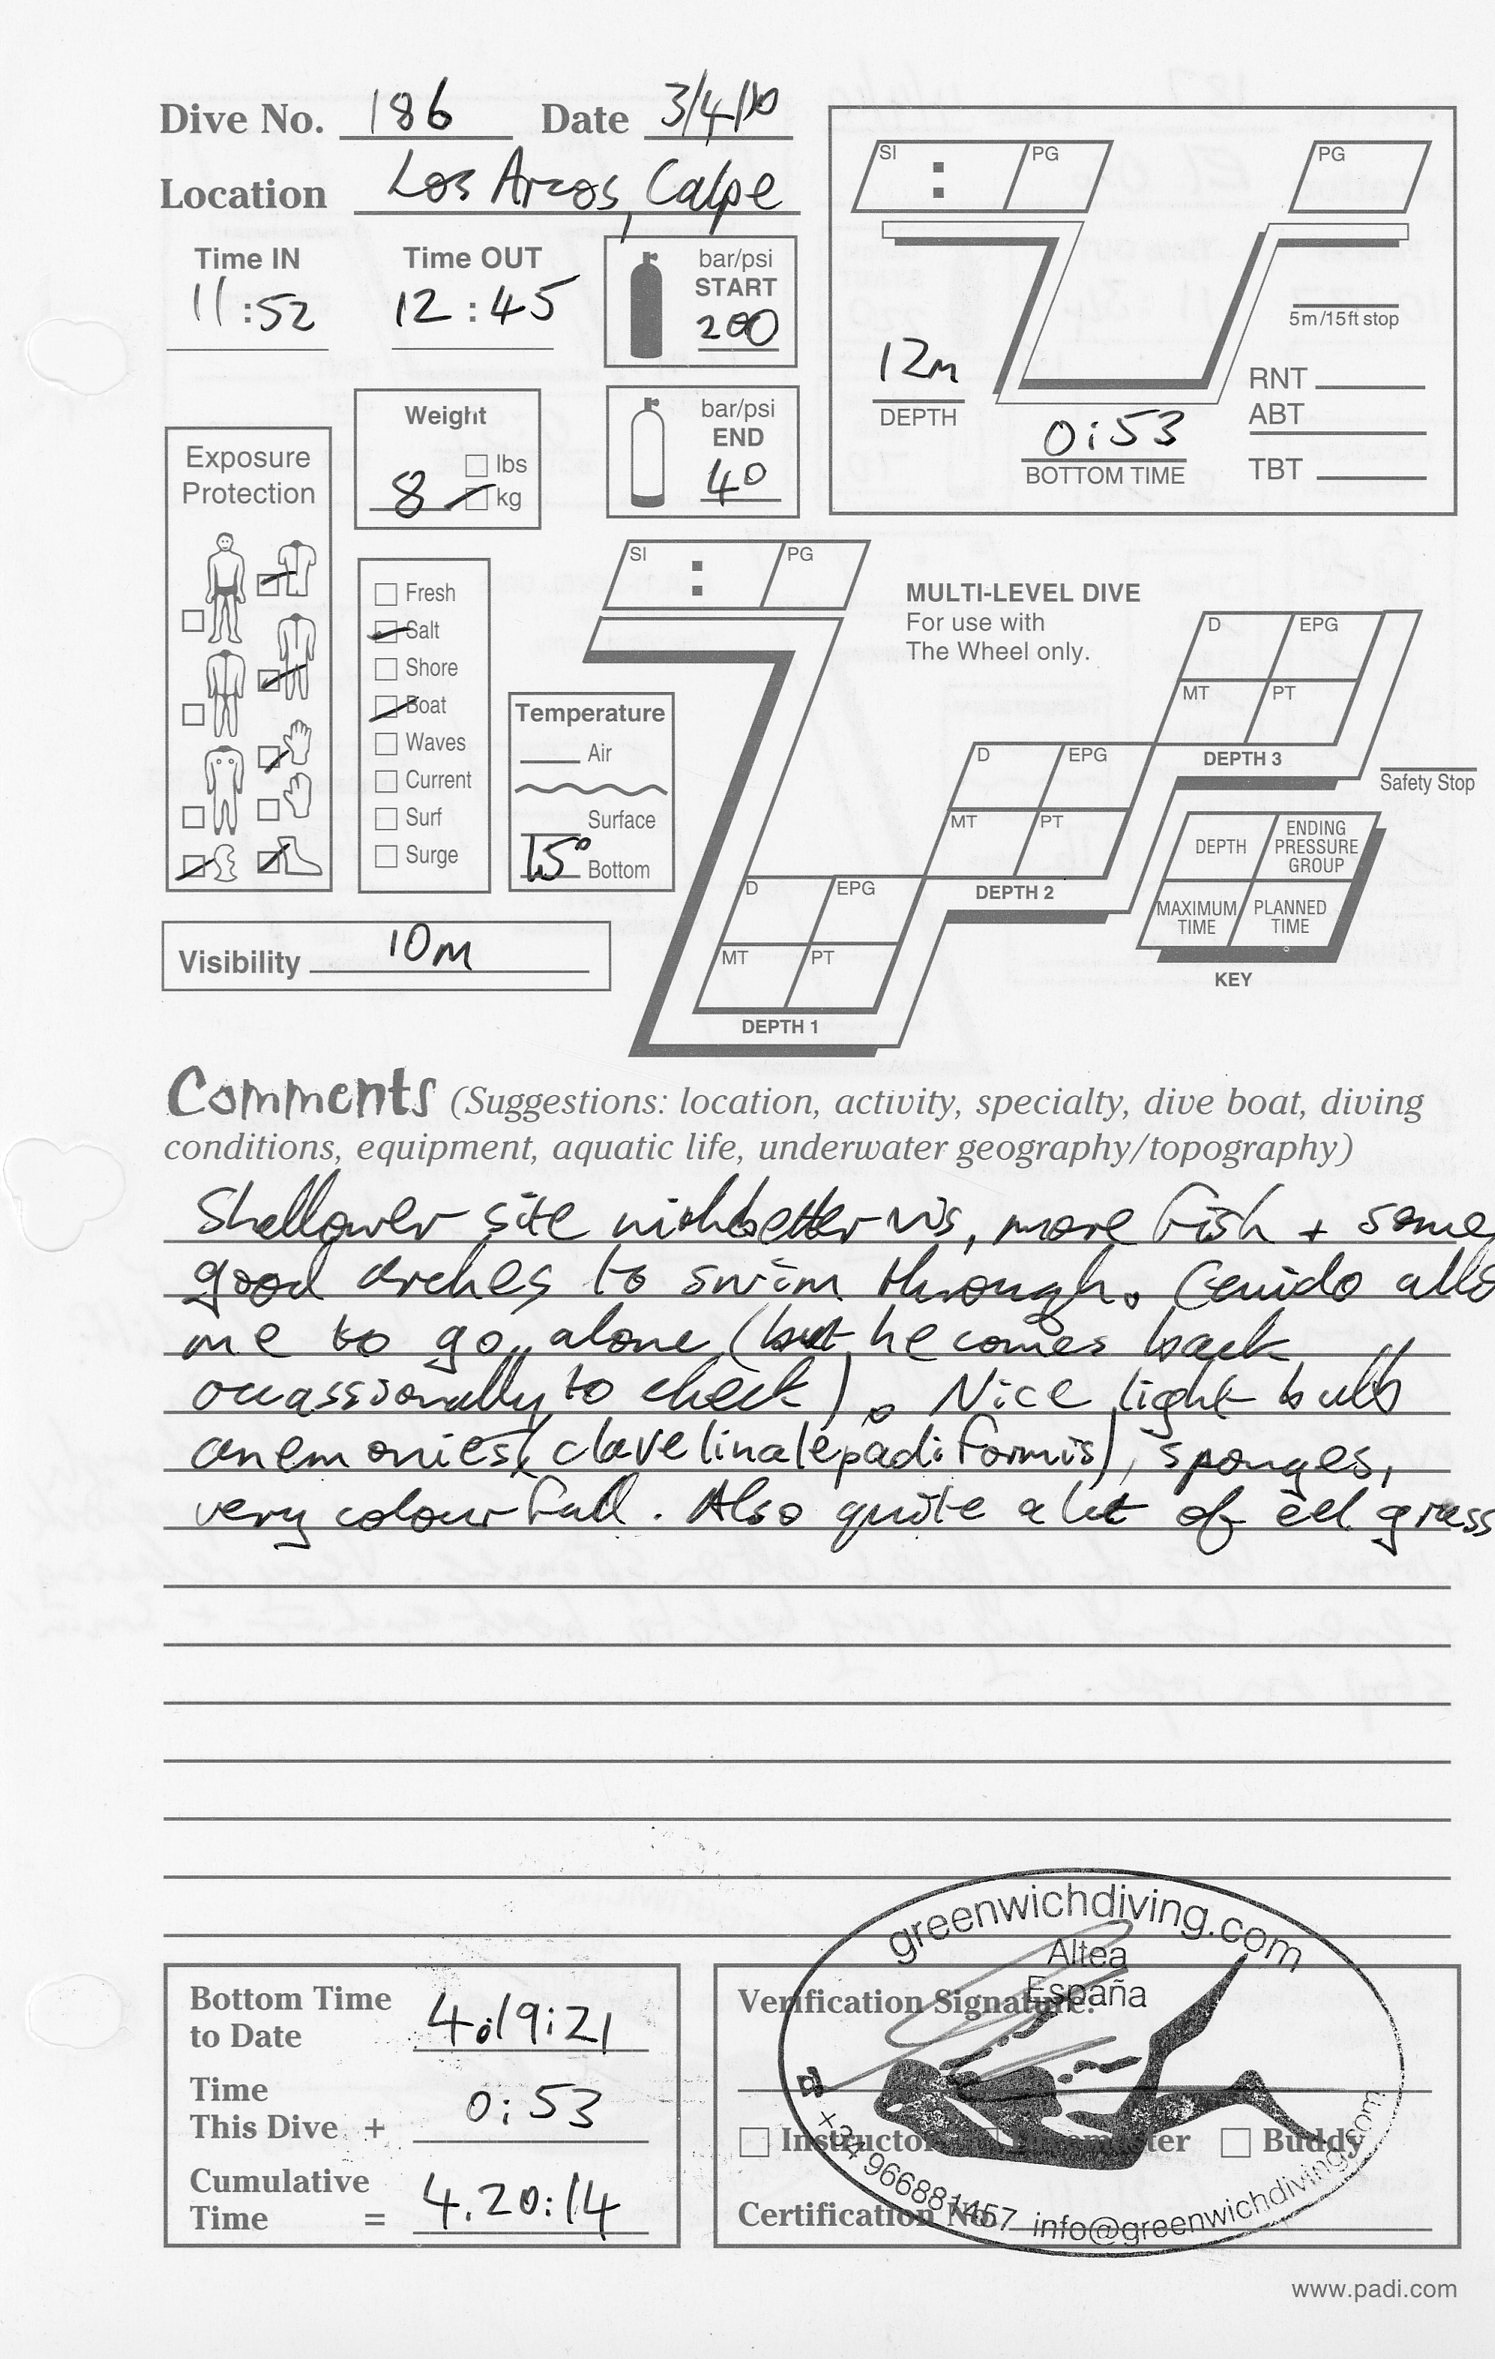 Dive No. 186 Date 3/4/10
Location Los Arcos, Calpe
Time IN Time OUT
11:52 12:45
bar/psi
START
200
bar/psi
END
40
SI : PG PG
5m/15ft stop
12m
DEPTH
0:53
BOTTOM TIME
RNT
ABT
TBT
Weight
lbs
8 kg
Exposure
Protection
Fresh
Salt
Shore
Boat
Waves
Current
Surf
Surge
Temperature
Air
Surface
15° Bottom
Visibility 10m
SI : PG
MULTI-LEVEL DIVE
For use with
The Wheel only.
D EPG
MT PT
DEPTH 3
Safety Stop
D EPG
MT PT
DEPTH 2
D EPG
MT PT
DEPTH 1
DEPTH
ENDING
PRESSURE
GROUP
MAXIMUM
TIME
PLANNED
TIME
KEY
Comments (Suggestions: location, activity, specialty, dive boat, diving
conditions, equipment, aquatic life, underwater geography/topography)
Shallower site with better vis, more fish + some
good arches to swim through.
me to go "alone" (but he comes back
occassionally to check). Nice light bulb
anemonies (clavelina lepadiformis), sponges,
very colourfull. Also quite a lot of eel grass
Bottom Time
to Date 4:19:21
Time
This Dive + 0:53
Cumulative
Time = 4.20:14
Verification Signature:
Instructor Buddy
Certification No.
greenwichdiving.com
Altea
España
+34 966881457 info@greenwichdiving.com
www.padi.com